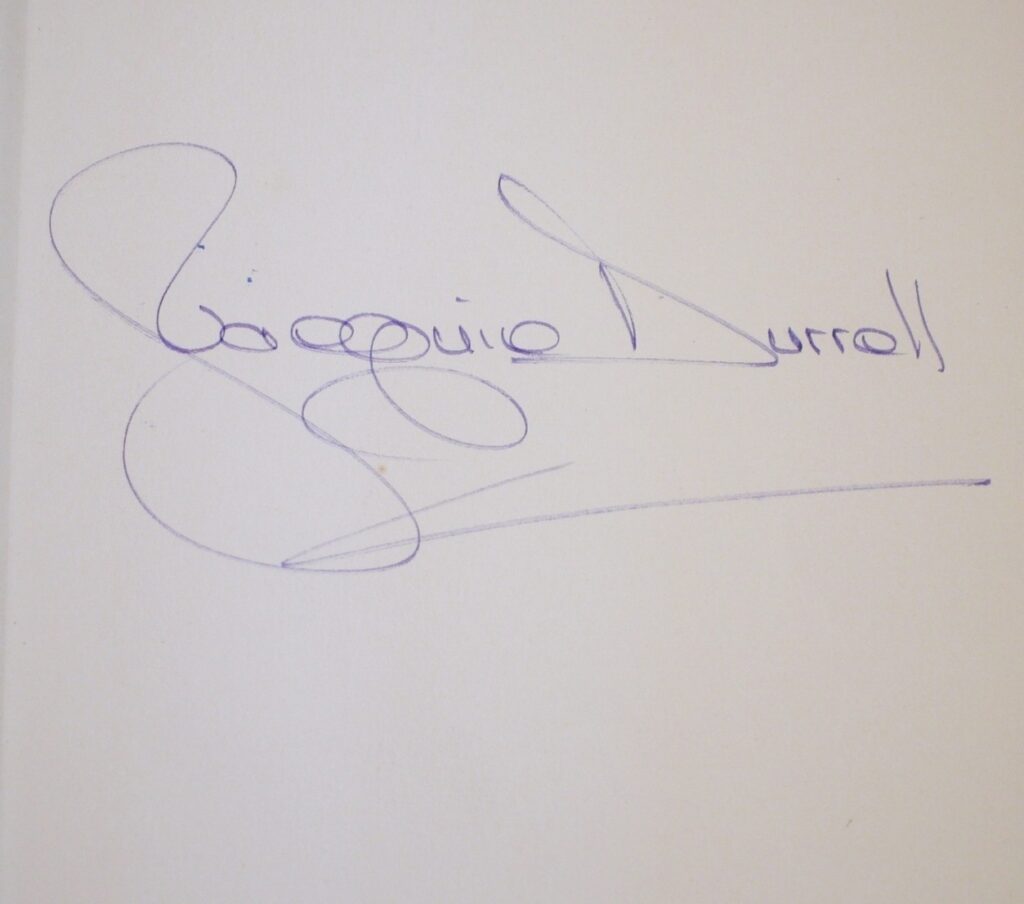 Jacquie Durrell